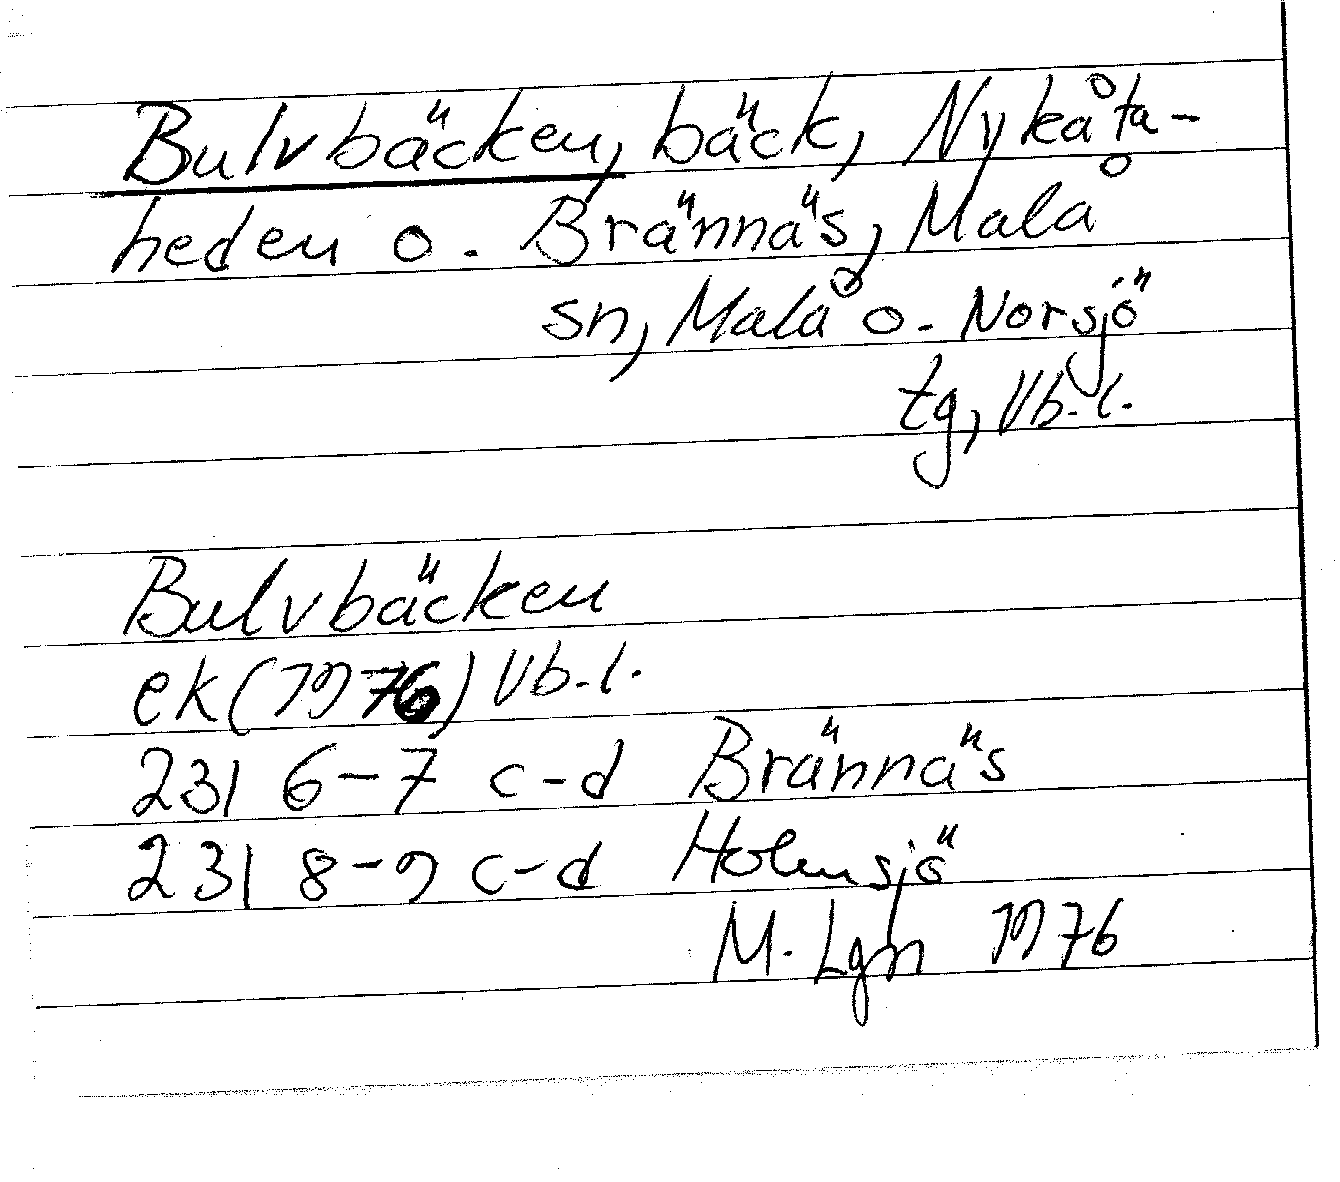 Bulvbäcken, bäck, Nykåta-
heden o. Brännäs, Malå
sn, Malå o. Norsjö
tg, Vb.l.
Bulvbäcken
ek (1976) Vb.l.
231 6-7 c-d Brännäs
231 8-9 c-d Holmsjö
M. Lgn 1976